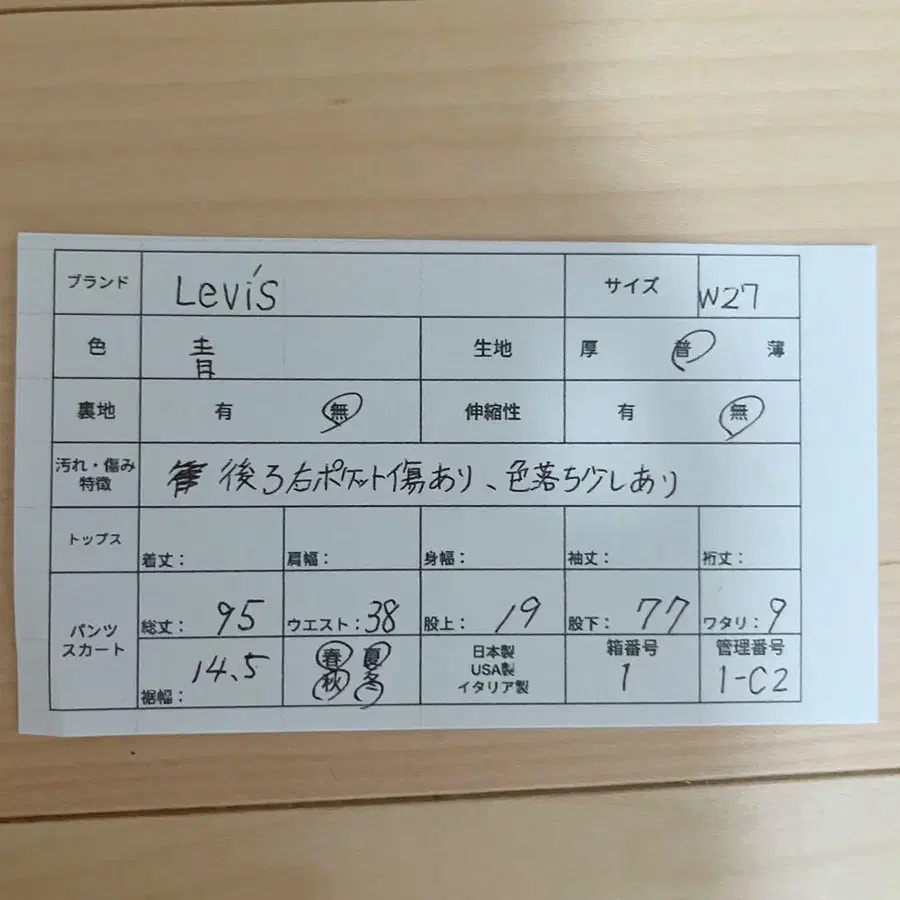 ブランド Levi's サイズ W27
色 青 生地 厚 普 薄
裏地 有 無 伸縮性 有 無
汚れ・傷み
特徴 後ろ右ポケット傷あり、色落ち少しあり
トップス 着丈: 肩幅: 身幅: 袖丈: 裄丈:
パンツ
スカート 総丈: 95 ウエスト: 38 股上: 19 股下: 77 ワタリ: 9
裾幅: 14.5 春 夏
秋 冬
日本製
USA製
イタリア製
箱番号
1
管理番号
1-C2